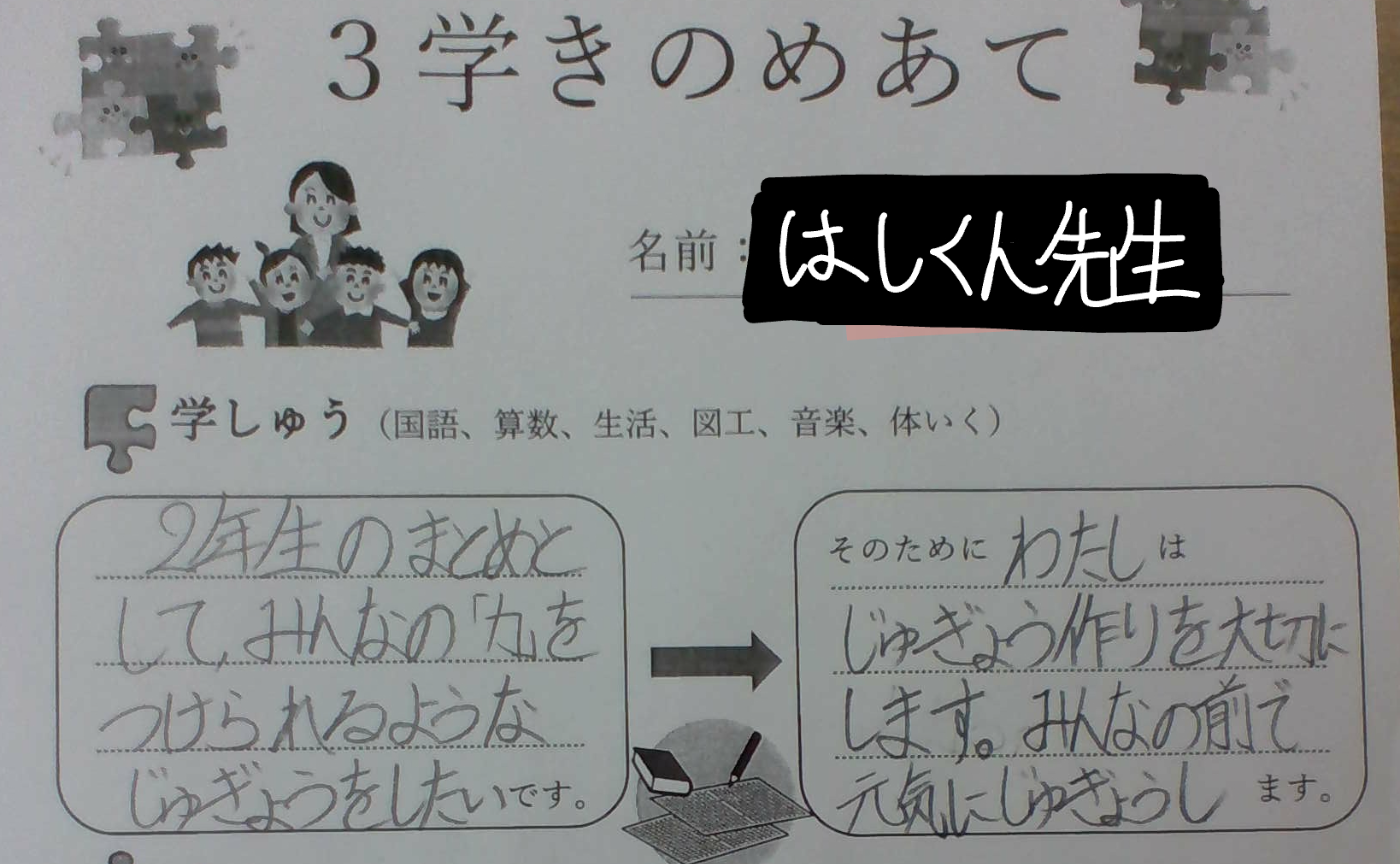 3学きのめあて
名前：はしくん先生
学しゅう（国語、算数、生活、図工、音楽、体いく）
2年生のまとめと
して、みんなの「力」を
つけられるような
じゅぎょうをしたいです。
そのために わたし は
じゅぎょう作りを大切に
します。みんなの前で
元気にじゅぎょうし ます。